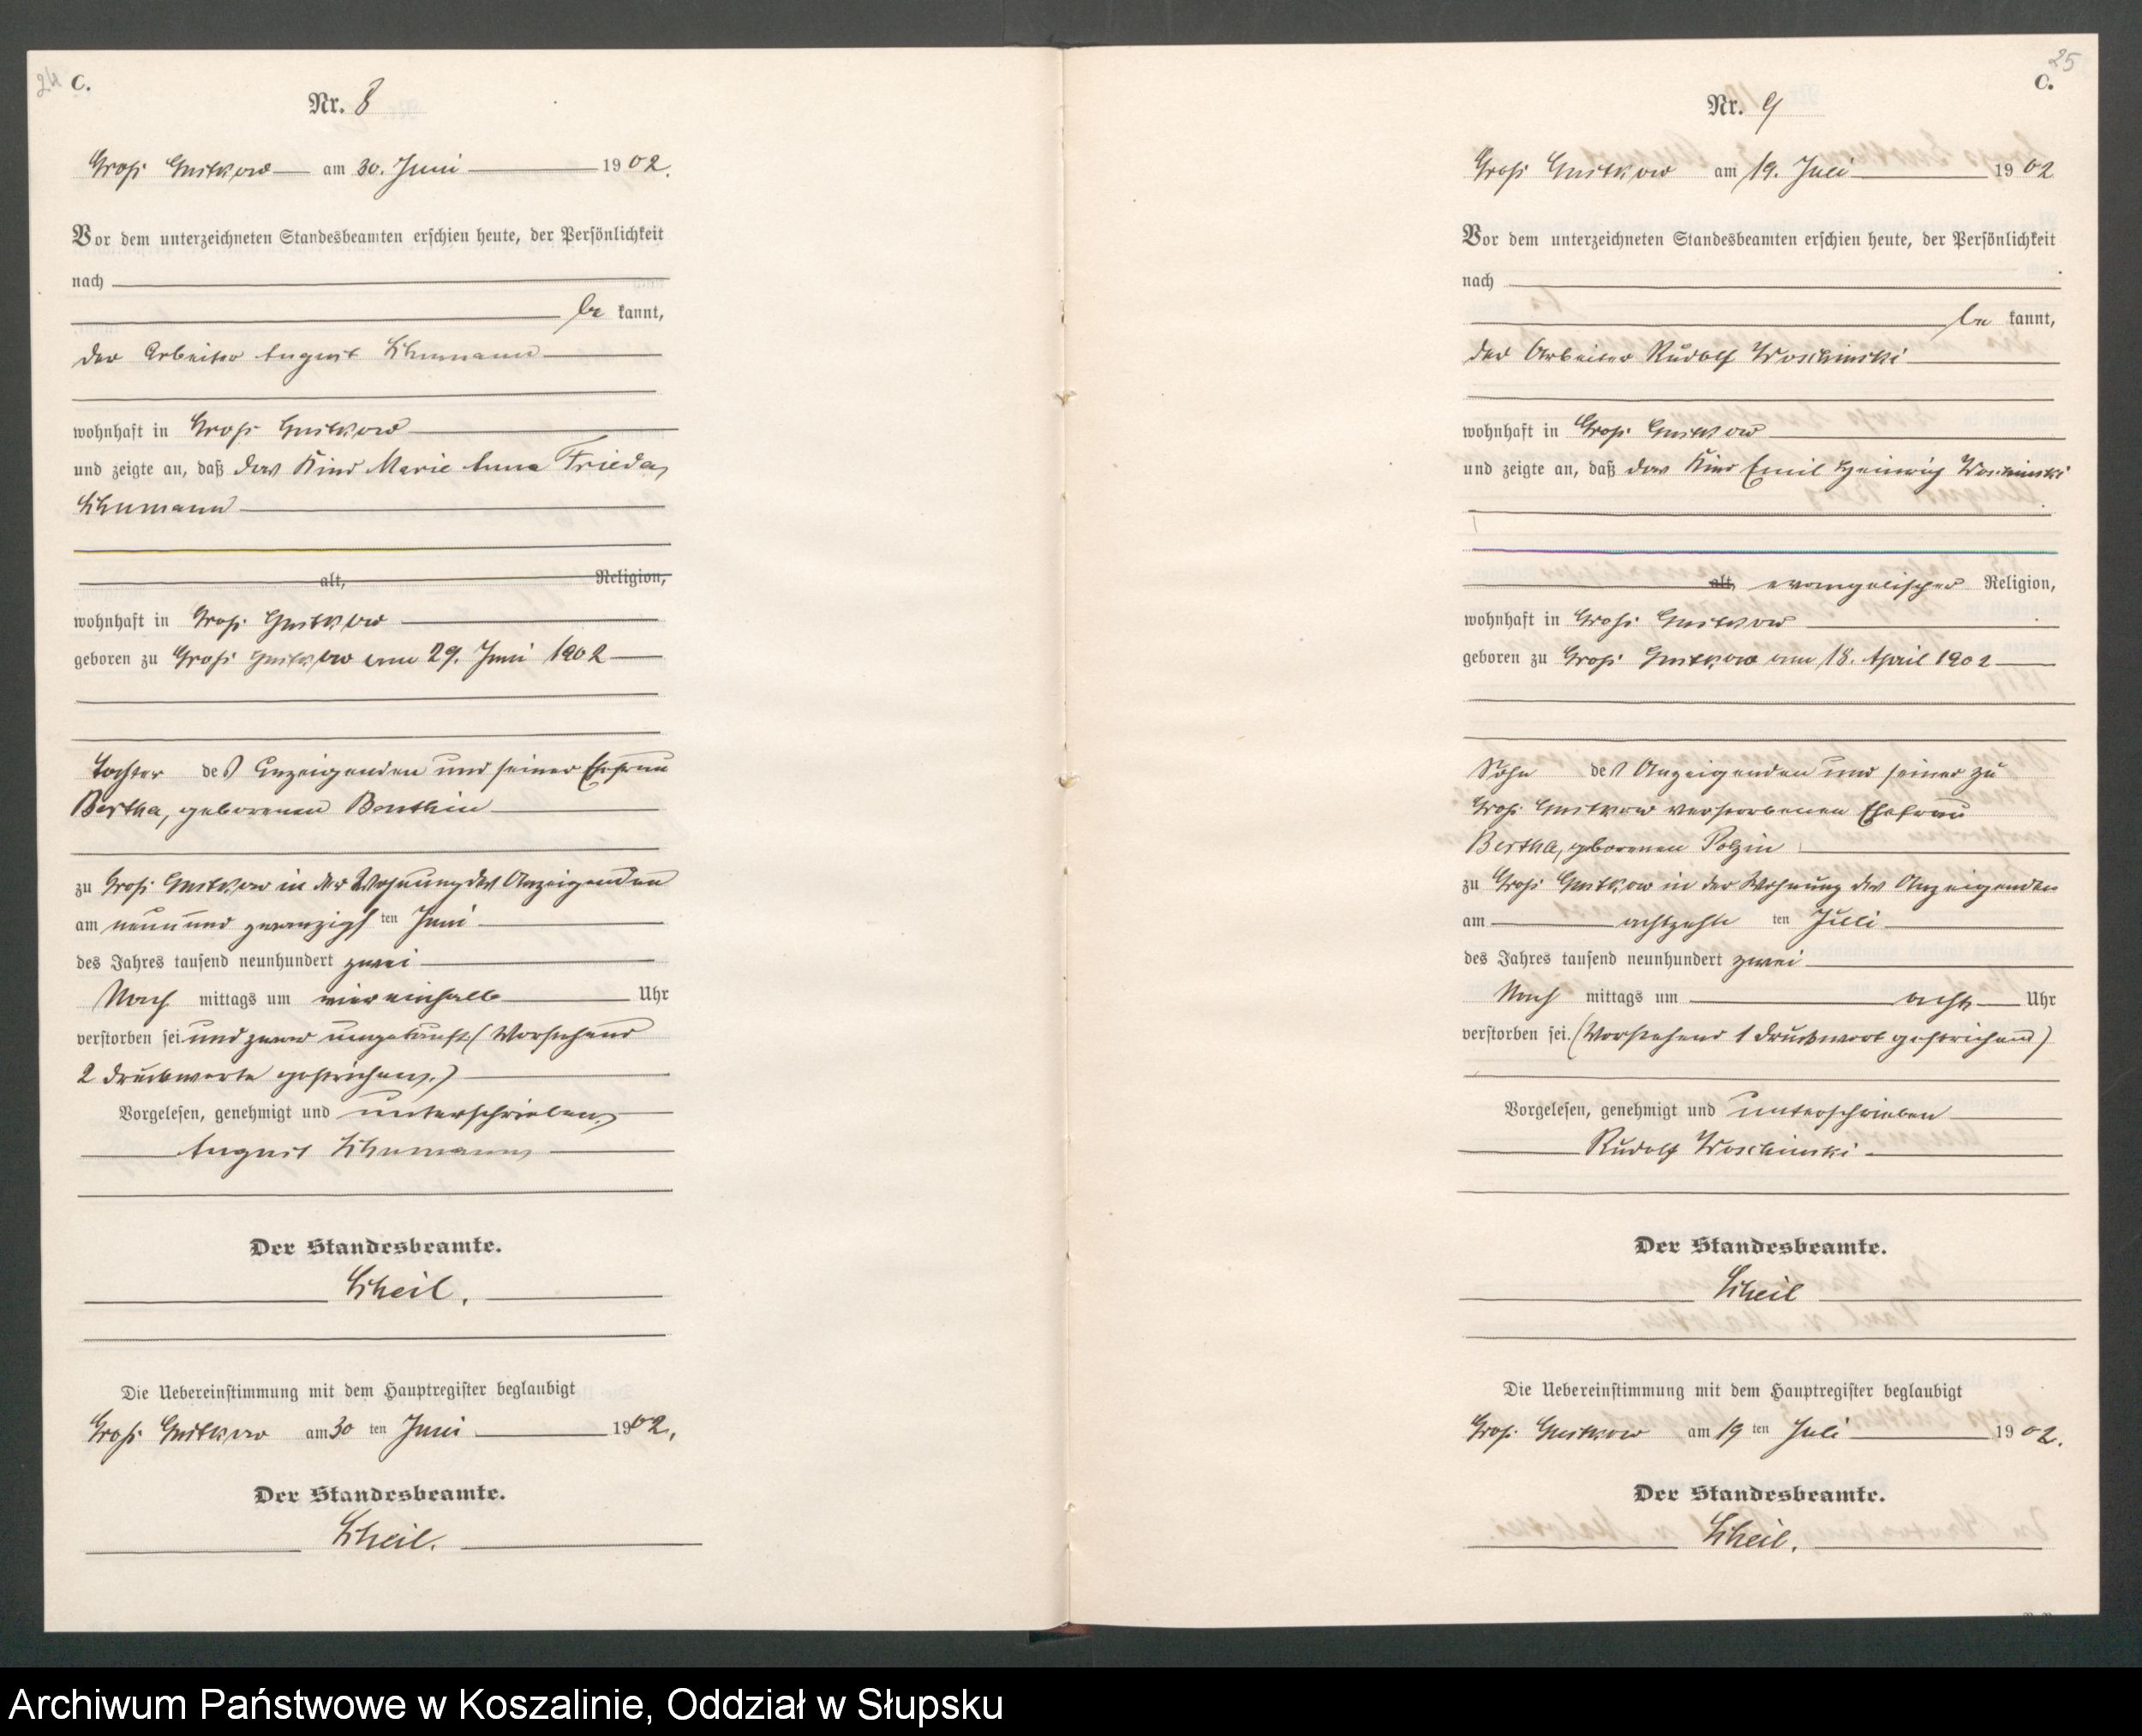 24 C.
Nr. 8
Groß Gustkow am 30. Juni 1902.
Vor dem unterzeichneten Standesbeamten erschien heute, der Persönlichkeit
nach
be kannt,
der Arbeiter August Schumann
wohnhaft in Groß Gustkow
und zeigte an, daß das Kind Marie Anna Frieda,
Schumann
alt, Religion,
wohnhaft in Groß Gustkow
geboren zu Groß Gustkow am 29. Juni 1902
Tochter des Anzeigenden und seiner Ehefrau
Bertha, geborenen Benthin
zu Groß Gustkow in der Wohnung des Anzeigenden
am neunundzwanzigsten Juni
des Jahres tausend neunhundert zwei
Nach mittags um viereinhalb Uhr
verstorben sei und zwar ungetauft. (Vorstehend
2 Druckworte gestrichen.)
Vorgelesen, genehmigt und unterschrieben
August Schumann
Der Standesbeamte.
Scheil.
Die Uebereinstimmung mit dem Hauptregister beglaubigt
Groß Gustkow am 30 ten Juni 1902.
Der Standesbeamte.
Scheil.
25
C.
Nr. 9
Groß Gustkow am 19. Juli 1902
Vor dem unterzeichneten Standesbeamten erschien heute, der Persönlichkeit
nach
be kannt,
der Arbeiter Rudolf Woschinski
wohnhaft in Groß Gustkow
und zeigte an, daß das Kind Emil Heinrich Woschinski
alt, evangelischer Religion,
wohnhaft in Groß Gustkow
geboren zu Groß Gustkow am 18. April 1902
Sohn des Anzeigenden und seiner zu
Groß Gustkow verstorbenen Ehefrau
Bertha, geborenen Polzin
zu Groß Gustkow in der Wohnung des Anzeigenden
am achtzehn ten Juli
des Jahres tausend neunhundert zwei
Nach mittags um acht Uhr
verstorben sei. (Vorstehend 1 Druckwort gestrichen)
Vorgelesen, genehmigt und unterschrieben
Rudolf Woschinski
Der Standesbeamte.
Scheil
Die Uebereinstimmung mit dem Hauptregister beglaubigt
Groß Gustkow am 19 ten Juli 1902.
Der Standesbeamte.
Scheil.
Archiwum Państwowe w Koszalinie, Oddział w Słupsku